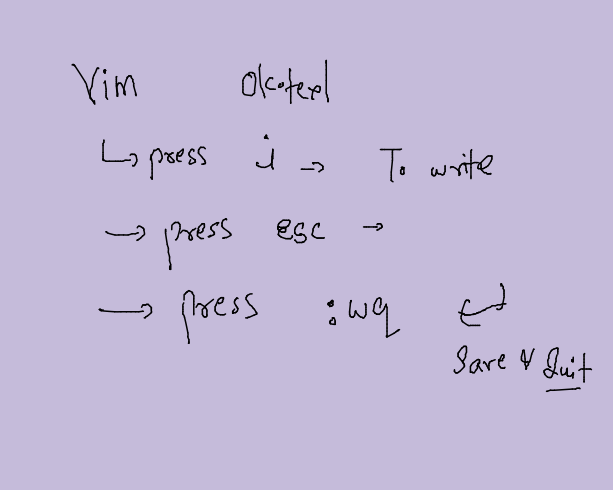 Vim
↳ press i → To write
→ press esc →
→ press :wq ↵
Save & Quit